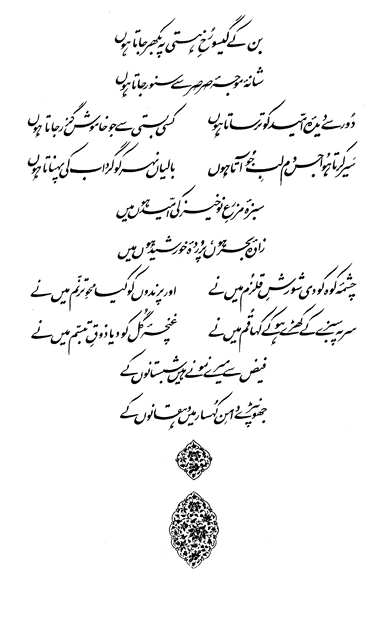 بن کے گیسو رخِ ہستی پہ بکھر جاتا ہوں
شانۂ موجۂ صرصر سے سنور جاتا ہوں
دور سے دیدۂ امید کو ترساتا ہوں کسی بستی سے جو خاموش گزر جاتا ہوں
سیر کرتا ہوا جس دم لبِ جو آتا ہوں بالیاں نہر کو گرداب کی پہناتا ہوں
سبزۂ مزرعِ نوخیز کی امید ہوں میں
زادۂ بحر ہوں، پروردۂ خورشید ہوں میں
چشمۂ کوہ کو دی شورشِ قلزم میں نے اور پرندوں کو کیا محوِ ترنم میں نے
سر پہ سبزے کے کھڑے ہو کے کہا قم میں نے غنچۂ گل کو دیا ذوقِ تبسم میں نے
فیض سے میرے نمونے ہیں شبستانوں کے
جھونپڑے دامنِ کہسار میں دہقانوں کے